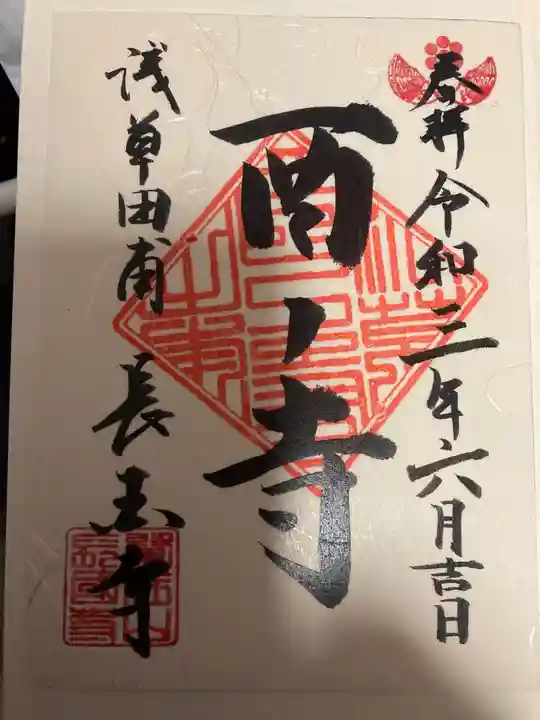 奉拝 令和三年六月吉日
酉ノ寺
浅草田甫 長國寺